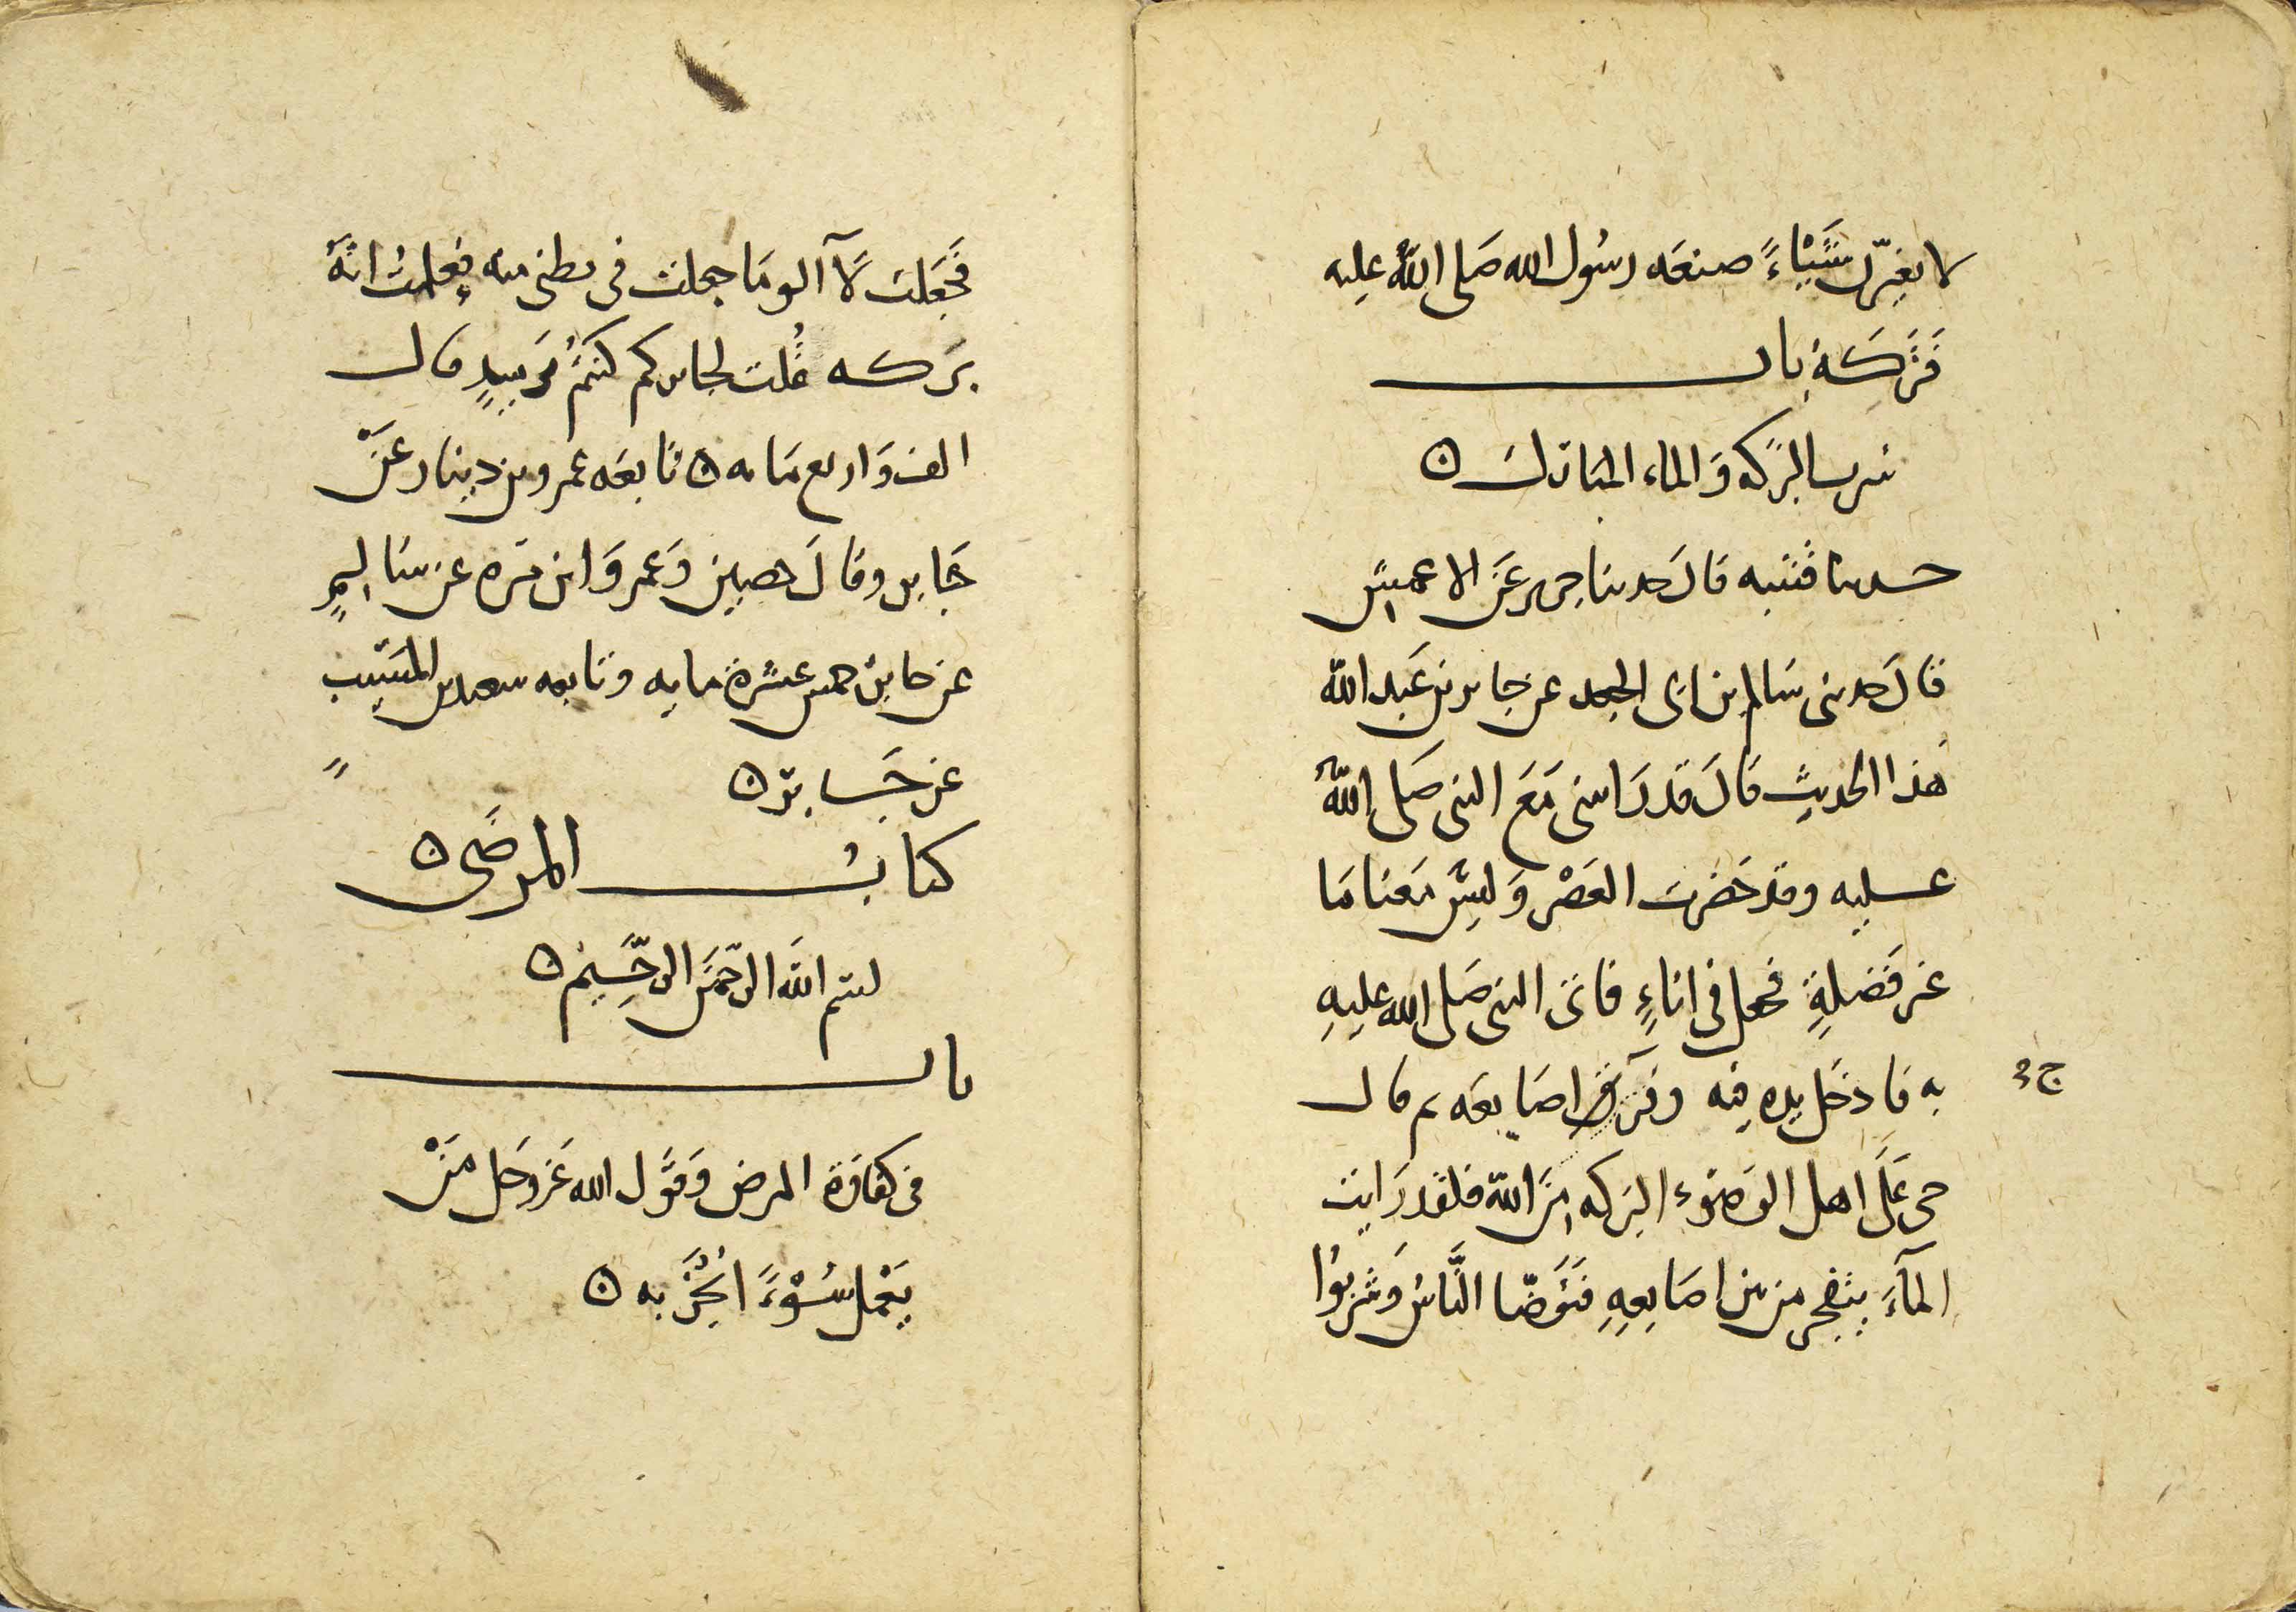 لا تغيرن شيئاً صنعه رسول الله صلى الله عليه
فتركه باب
شرب البركه والماء المبارك ۞
حدثنا قتيبه قال حدثنا جرير عن الاعمش
قال حدثنى سالم بن ابى الجعد عن جابر بن عبد الله
هذا الحديث قال قد رايتنى مع النبى صلى الله
عليه وقد حضرت العصر وليس معنا ما
غير فضلةٍ فجعل فى اناءٍ فاتى النبى صلى الله عليهِ
به فادخل يده فيه وفرج اصابعه ثم قال
حى على اهل الوضوء البركه من الله فلقد رايت
المآء يتفجر من بين اصابعهِ فتوضا الناسُ وشربوا
فجعلت لا آلو ما جعلت فى بطنى منه فعلمتُ انه
بركه قلت لجابر كم كنتم يوميذٍ قال
الف واربع مايه ۞ تابعه عمرو بن دينار عن
جابر وقال حصين وعمرو ابن مره عن سالمٍ
عن جابر خمس عشرة مايه وتابعه سعيد بن المسيب
عن جابر ۞
كتابُ المرضى ۞
بسم الله الرحمن الرحيم ۞
باب
فى كفارة المرض وقول الله عز وجل من
يعمل سوءاً يُجز به ۞